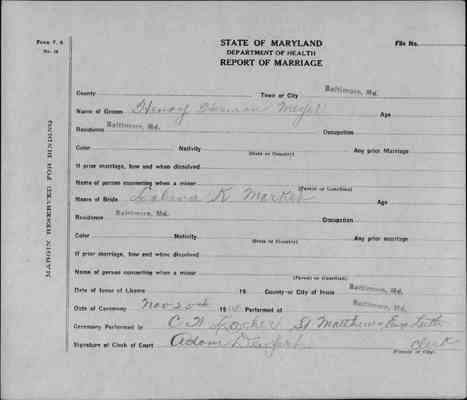 Form V. S.
No. 18
STATE OF MARYLAND
DEPARTMENT OF HEALTH
REPORT OF MARRIAGE
File No.
MARGIN RESERVED FOR BINDING
County Town or City Baltimore, Md.
Name of Groom Henry Herman Meyer Age
Residence Baltimore, Md. Occupation
Color Nativity (State or Country) Any prior Marriage
If prior marriage, how and when dissolved
Name of person consenting when a minor (Parent or Guardian)
Name of Bride K Age
Residence Baltimore, Md. Occupation
Color Nativity (State or Country) Any prior marriage
If prior marriage, how and when dissolved
Name of person consenting when a minor (Parent or Guardian)
Date of Issue of License 19 County or City of Issue Baltimore, Md.
Date of Ceremony Nov 20th 19 Performed at Baltimore, Md.
Ceremony Performed by St. Matthews Evg Luth
Signature of Clerk of Court Adam Clerk
(County or City)